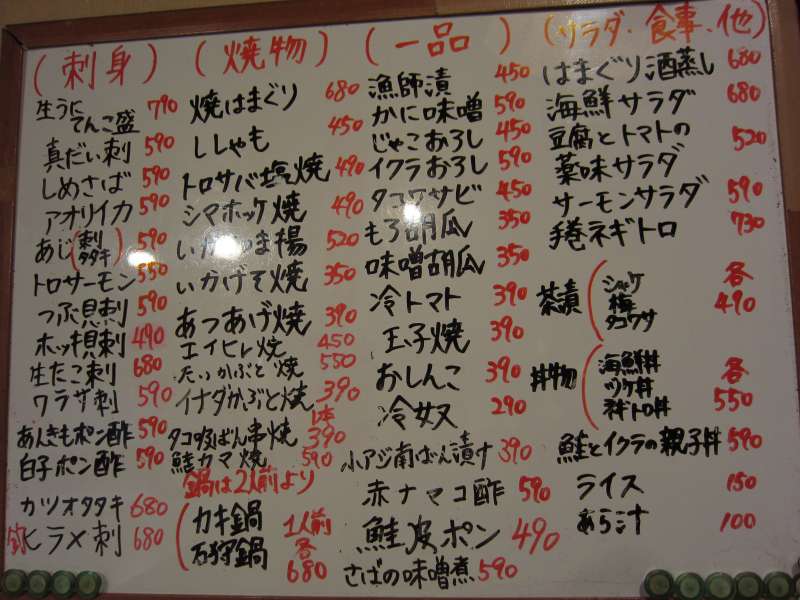 (刺身)
生うに
てんこ盛 790
真だい刺 590
しめさば 590
アオリイカ 590
あじ(刺 タタキ) 590
トロサーモン 550
つぶ貝刺 590
ホッキ貝刺 490
生たこ刺 680
ワラサ刺 590
あんきもポン酢 590
白子ポン酢 590
カツオタタキ 680
釣ヒラメ刺 680
(焼物)
焼はまぐり 680
ししゃも 450
トロサバ塩焼 490
シマホッケ焼 490
いかさつま揚 520
いかげそ焼 350
あつあげ焼 390
エイヒレ焼 450
たいかぶと焼 550
イナダかぶと焼 390
タコ吸ばん串焼 1本 390
鮭カマ焼 590
鍋は2人前より
カキ鍋 1人前
石狩鍋 各 680
(一品)
漁師漬 450
かに味噌 590
じゃこおろし 450
イクラおろし 590
タコワサビ 450
もろ胡瓜 350
味噌胡瓜 350
冷トマト 390
玉子焼 390
おしんこ 390
冷奴 290
小アジ南ばん漬け 390
赤ナマコ酢 590
鮭皮ポン 490
さばの味噌煮 590
(サラダ・食事、他)
はまぐり酒蒸し 680
海鮮サラダ 680
豆腐とトマトの
薬味サラダ 520
サーモンサラダ 590
手巻ネギトロ 730
茶漬(シャケ 各
梅 490
タコワサ
丼物(海鮮丼 各
ヅケ丼 550
ネギトロ丼
鮭とイクラの親子丼 590
ライス 150
あら汁 100